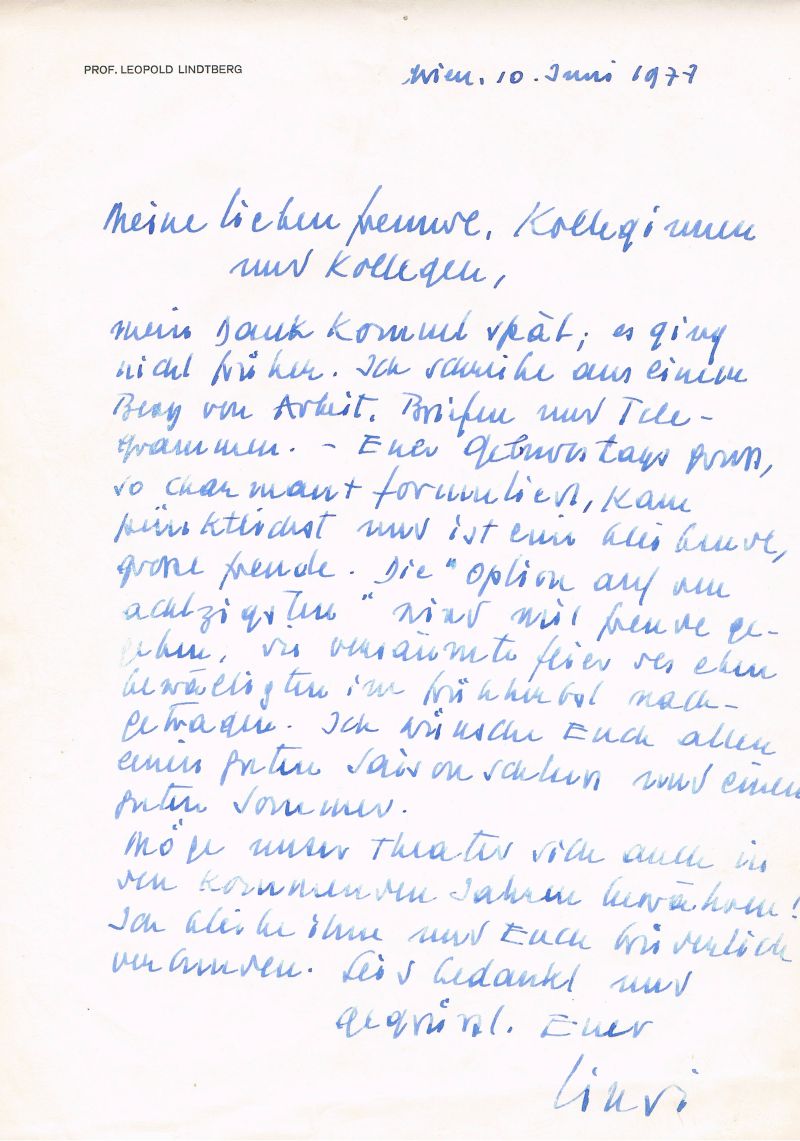 PROF. LEOPOLD LINDTBERG
Wien, 10. Juni 1977
Meine lieben Freunde, Kolleginnen
und Kollegen,
mein Dank kommt spät; es ging
nicht früher. Ich schreibe aus einem
Berg von Arbeit, Briefen und Tele-
grammen. – Euer Geburtstagsgruss,
so charmant formuliert, kam
pünktlichst und ist eine bleibende,
grosse Freude. Die "Option auf den
achtzigsten" wird mit Freude ge-
geben, die versäumte Feier des eben
bewältigten im Frühherbst nach-
getragen. Ich wünsche Euch allen
einen guten Saisonschluss und einen
guten Sommer.
Möge unser Theater sich auch in
den kommenden Jahren bewähren!
Ich bleibe ihm und Euch brüderlich
verbunden. Seid bedankt und
gegrüsst. Euer
Lindi